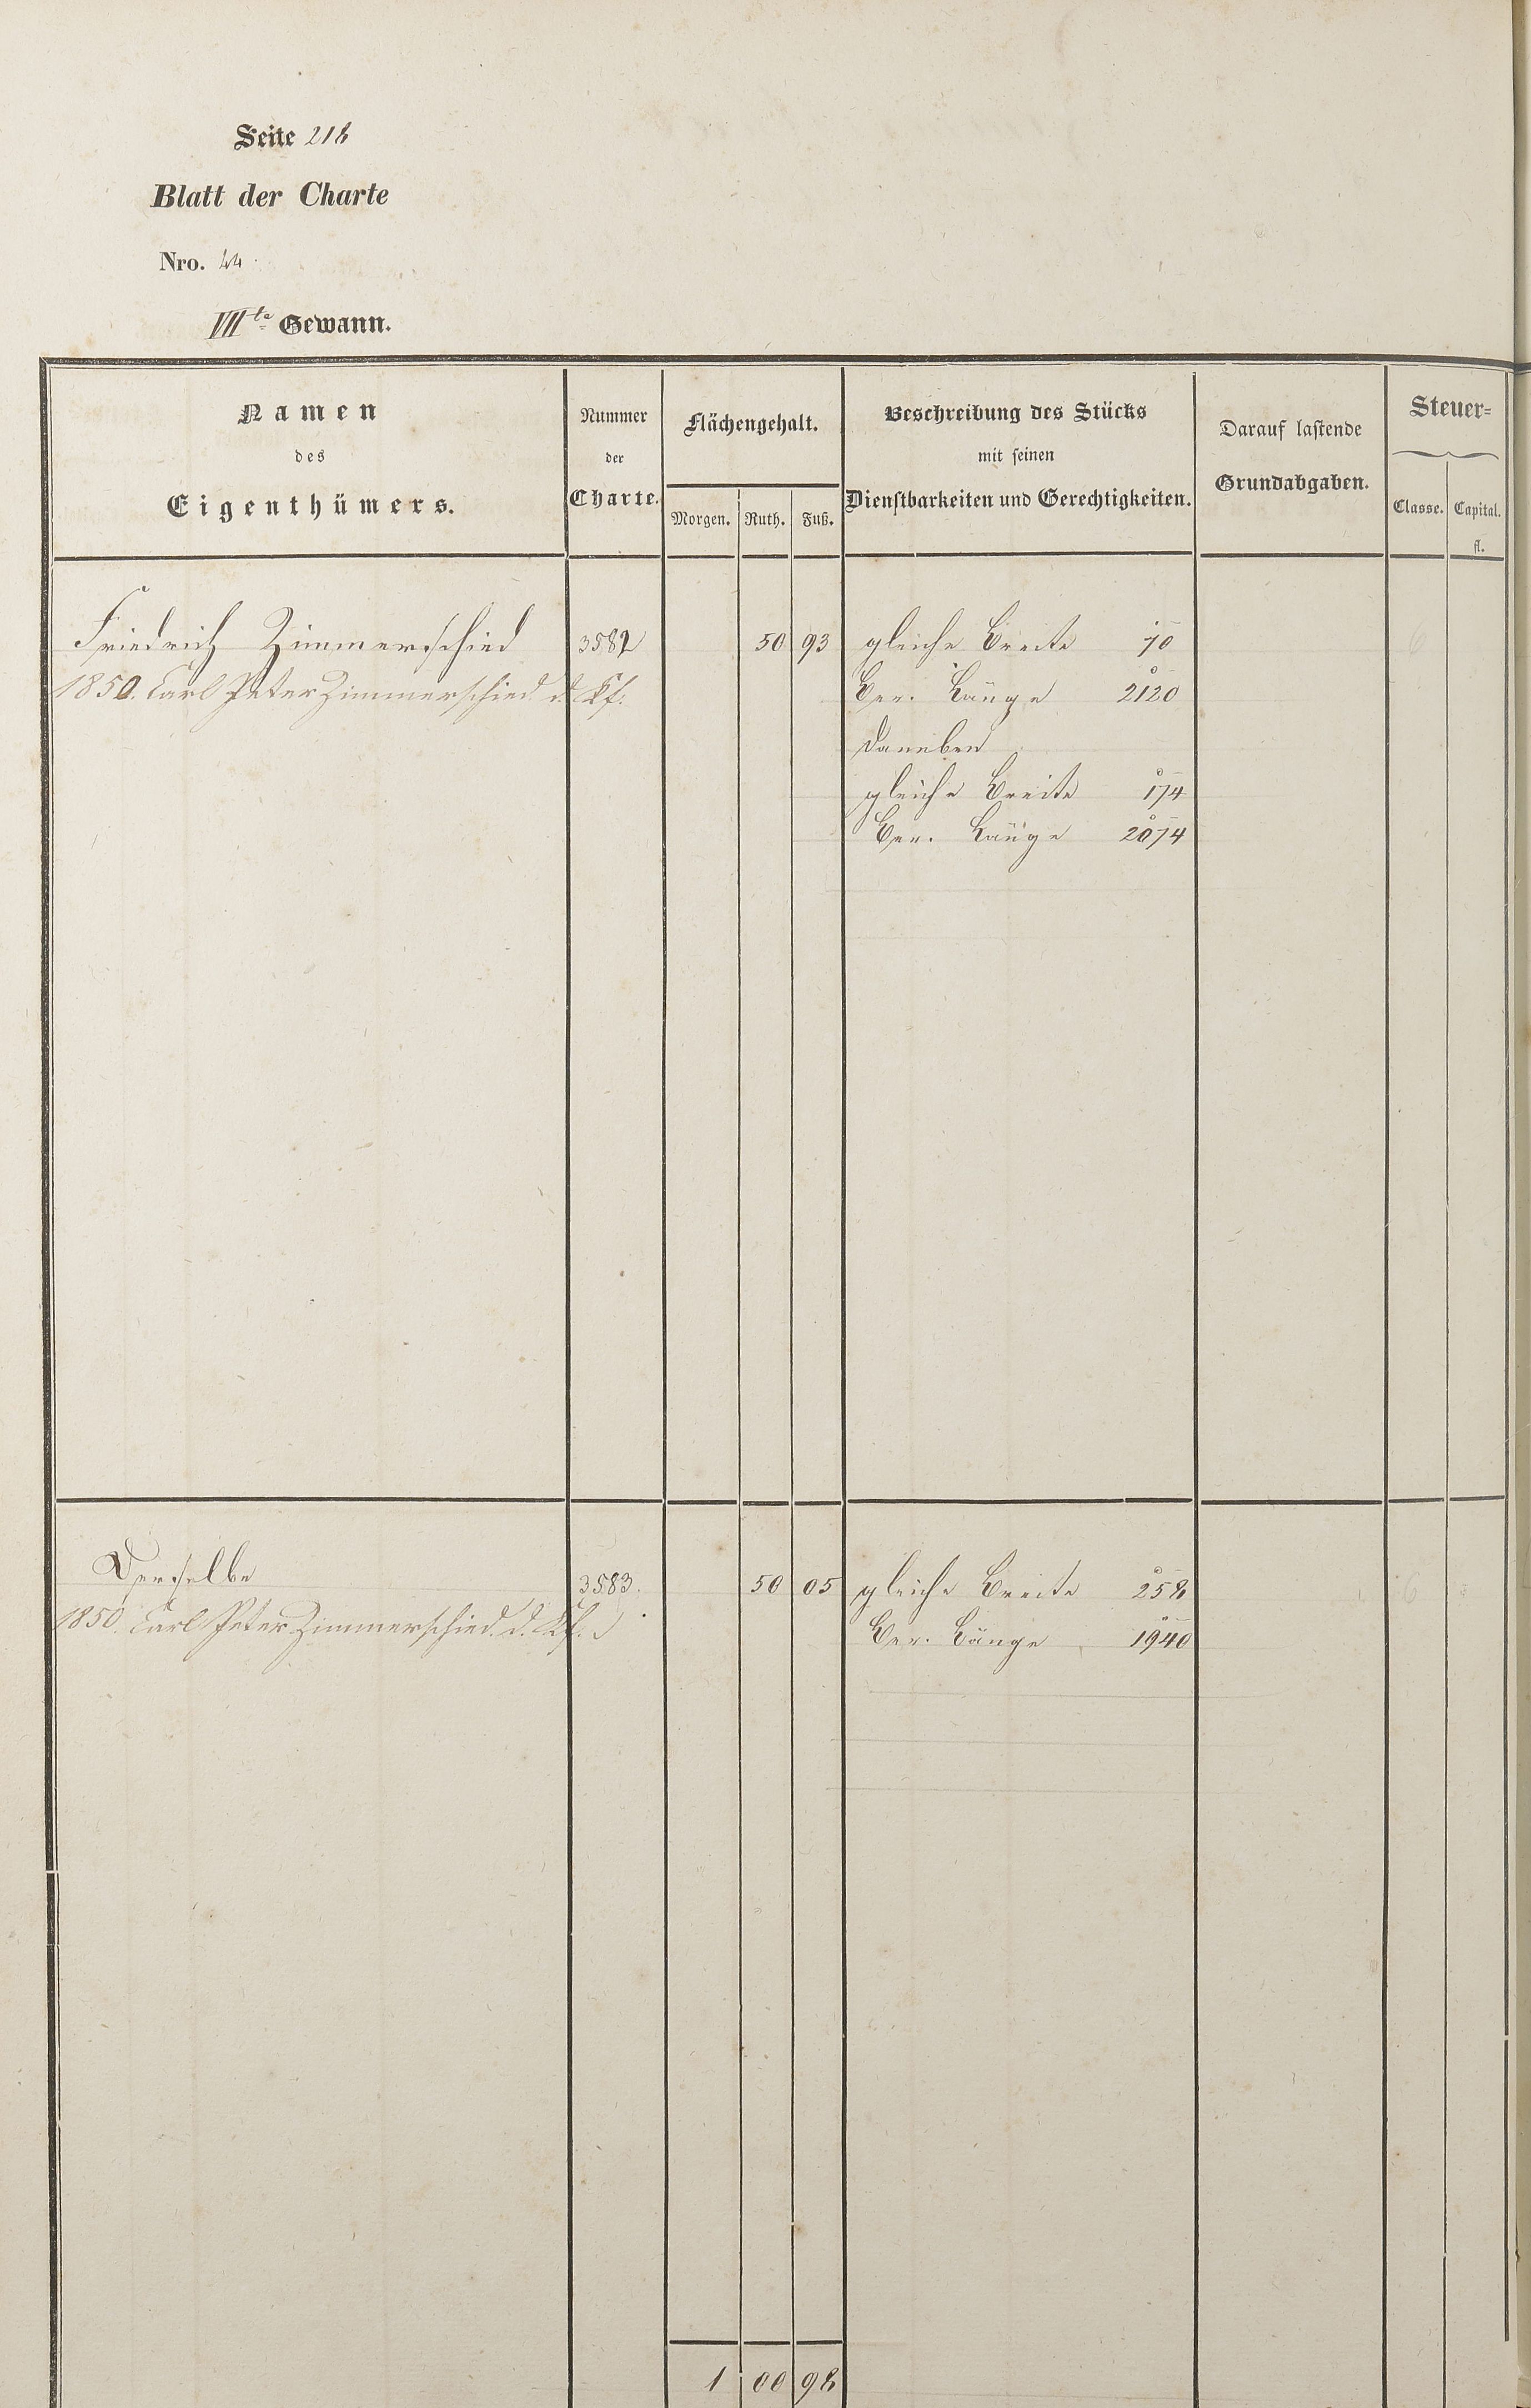 Seite 218
Blatt der Charte
Nro. 44.
VIIte Gewann.
Namen des Eigenthümers.
Nummer der Charte.
Flächengehalt.
Morgen. Ruth. Fuß.
Beschreibung des Stücks mit seinen Dienstbarkeiten und Gerechtigkeiten.
Darauf lastende Grundabgaben.
Steuer=
Classe. Capital. fl.
Friedrich Zimmerschied 3582 50 93 gleiche Breite 70 6
1850. Carl Peter Zimmerschied d. Kf. Ber. Länge 2120
daneben
gleiche Breite 174
Ber. Länge 2074
Derselbe 3583. 50 05 gleiche Breite 258 6
1850. Carl Peter Zimmerschied. d. Kf. Ber. Länge 1940
1 00 98